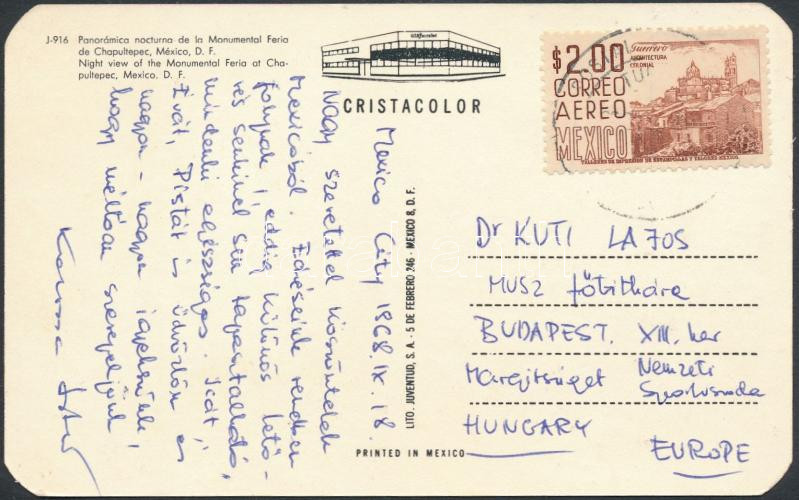 J-916 Panorámica nocturna de la Monumental Feria
de Chapultepec, México, D. F.
Night view of the Monumental Feria at Cha-
pultepec, Mexico. D. F.
CRISTACOLOR
$2.00
Guerrero
ARQUITECTURA
COLONIAL
CORREO
AEREO
MEXICO
TALLERES DE IMPRESION DE ESTAMPILLAS Y VALORES-MEXICO.
Mexico City 1968. IX. 18.
Nagy szeretettel köszöntelek
Mexicóból. Edzéseink rendben
folynak, eddig különös
senkinél sem tapasztalható,
mindenki egészséges. Icát,
Évát, Pistát is üdvözlöm és
nagyon - nagyon igyekszünk,
hogy méltóan szerepeljünk
LITO. JUVENTUD, S. A. - 5 DE FEBRERO 246 - MEXICO 8, D. F.
Dr KUTI LAJOS
MUSZ főtitkára
BUDAPEST. XIII. ker
Margitsziget Nemzeti
Sportuszoda
HUNGARY
EUROPE
PRINTED IN MEXICO